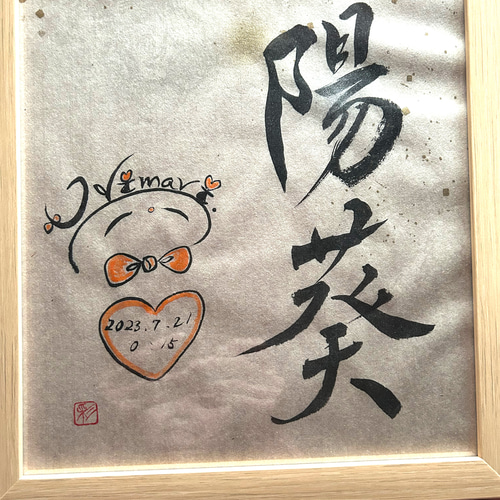 陽葵
Himari
2023.7.21
0.15
彩